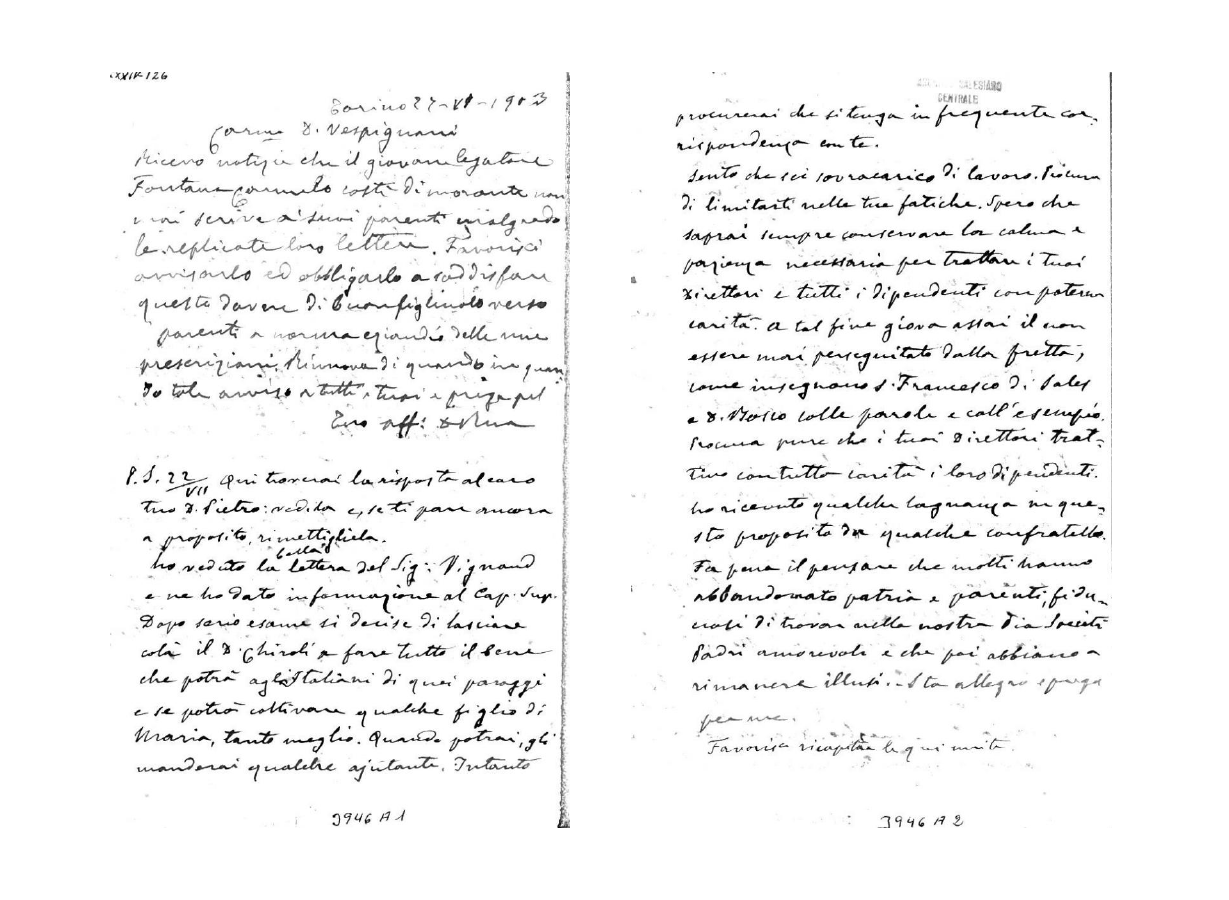 XXIV-126
Torino 27-VI-1903
Carmo D. Vespignani
Ricevo notizie che il giovane legatore
Fontana Carmelo costì dimorante non
mai scrive a' suoi parenti malgrado
le replicate loro lettere. Favorisci
avvisarlo ed obbligarlo a soddisfare
questo dovere di buon figliuolo verso
parenti a norma eziandio delle mie
prescrizioni. Rinnova di quando in quan
do tale avviso a tutti i tuoi e prega pel
Tuo aff: D Rua
P.S. 22/VII Qui troverai la risposta al caro
tuo D. Pietro: vedila e, se ti pare ancora
a proposito, rimettigliela.
bella
ho veduto la lettera del Sig: Vignaud
e ne ho dato informazione al Cap. Sup.
Dopo serio esame si decise di lasciare
colà il D. Ghiroli a fare tutto il bene
che potrà agl'Italiani di quei paraggi
e se potrà coltivare qualche figlio di
Maria, tanto meglio. Quando potrai, gli
manderai qualche ajutante. Intanto
3946 A 1
SALESIANO
CENTRALE
procurerai che si tenga in frequente cor-
rispondenza con te.
Sento che sei sovracarico di lavoro. Procura
di limitarti nelle tue fatiche. Spero che
saprai sempre conservare la calma e
pazienza necessaria per trattare i tuoi
Direttori e tutti i dipendenti con paterna
carità. A tal fine giova assai il non
essere mai perseguitato dalla fretta,
come insegnano S. Francesco di Sales
e D. Bosco colle parole e coll'esempio.
Procura pure che i tuoi Direttori trat-
tino con tutta carità i loro dipendenti.
ho ricevuto qualche lagnanza in que-
sto proposito da qualche confratello.
Fa pena il pensare che molti hanno
abbandonato patria e parenti, fidu-
ciosi di trovar nella nostra Pia Società
Padri amorevoli e che poi abbiano a
rimanere illusi. - Sta allegro e prega
per me.
Favorisci ricapitare le qui unite.
3946 A 2